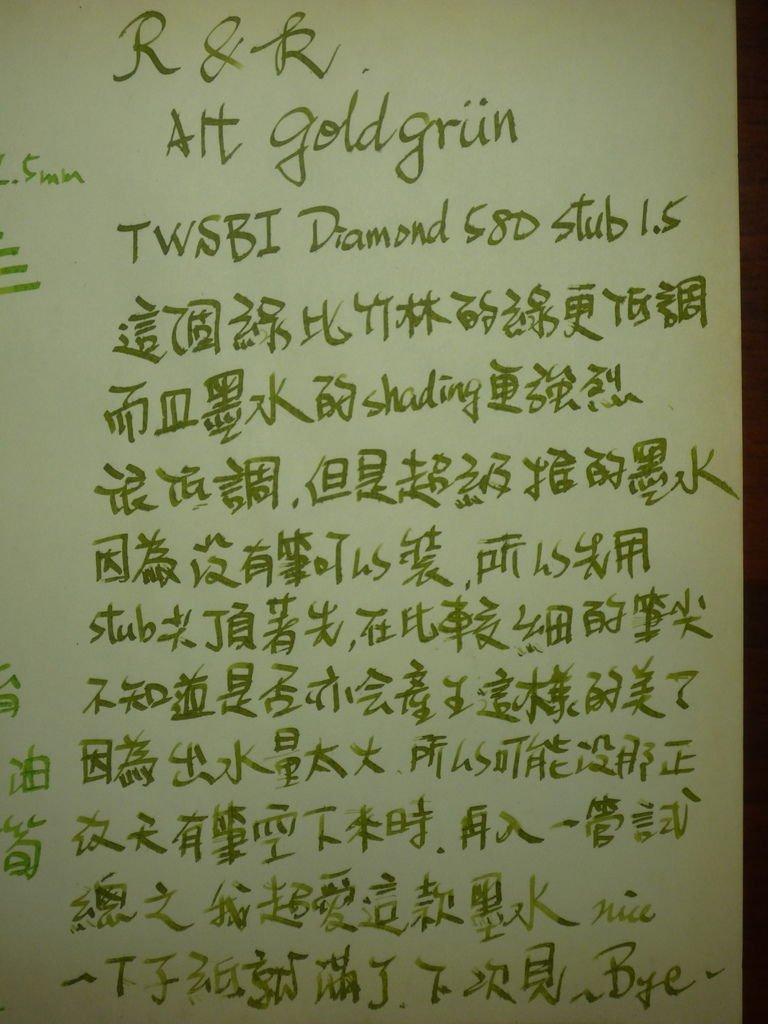 R & K.
Alt Goldgrün
1.5mm
TWSBI Diamond 580 stub 1.5
這個綠比竹林的綠更低調
而且墨水的shading更強烈
很低調,但是超級推的墨水
因為沒有筆可以裝,所以先用
stub尖頂著先,在比較細的筆尖
不知道是否亦会產生這樣的美了
因為出水量太大.所以可能沒那正
改天有筆空下來時.再入一管試
總之我超愛這款墨水 nice
~下子紙就滿了.下次見~Bye~
油